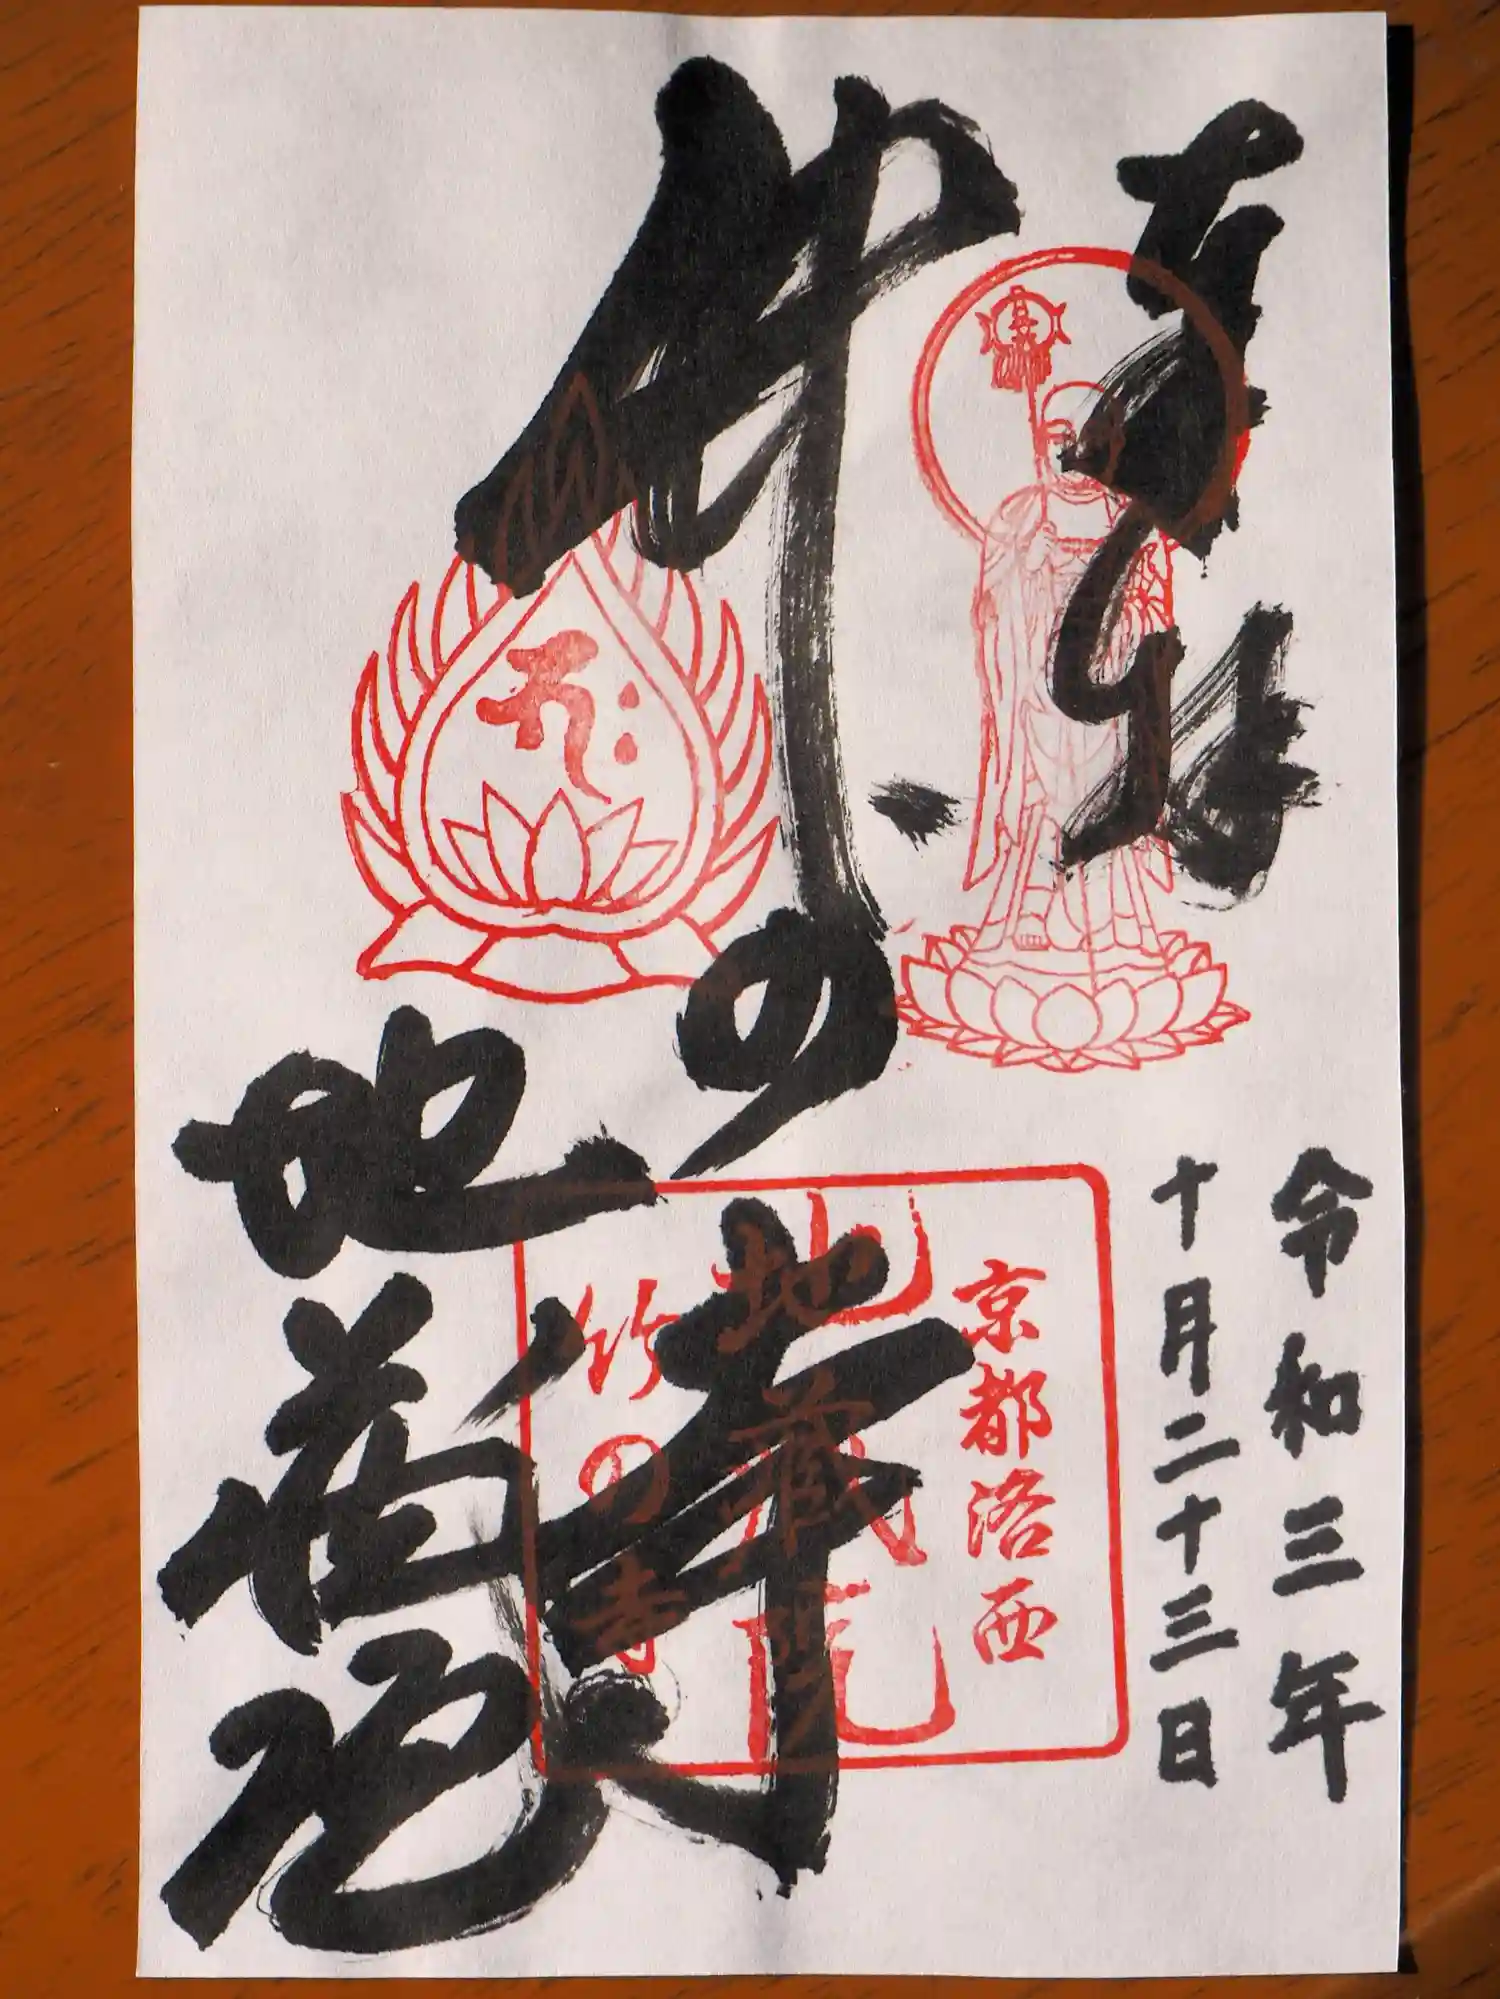 奉拝
令和三年
十月二十三日
竹の寺
地蔵院
京都洛西
地蔵院
竹の寺